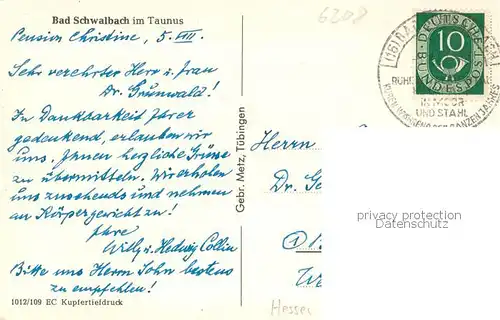 Bad Schwalbach im Taunus
Pension Christine, 5. VIII.
Sehr verehrter Herr u. Frau
Dr. Grünwald!
In Dankbarkeit Ihrer
gedenkend, erlauben wir
uns, Ihnen herzliche Grüsse
zu übermitteln. Wir erholen
uns zusehends und nehmen
an Körpergewicht zu!
Ihre
Willy u. Hedwig Collin
Bitte uns Herrn Sohn bestens
zu empfehlen!
1012/109 EC Kupfertiefdruck
Gebr. Metz, Tübingen
6208
(16) BAD
IN MOOR
UND STAHL
DES GANZEN JAHRES
DEUTSCHE
10
BUNDESPOST
Herrn
Dr.
privacy protection
Datenschutz
Hessen